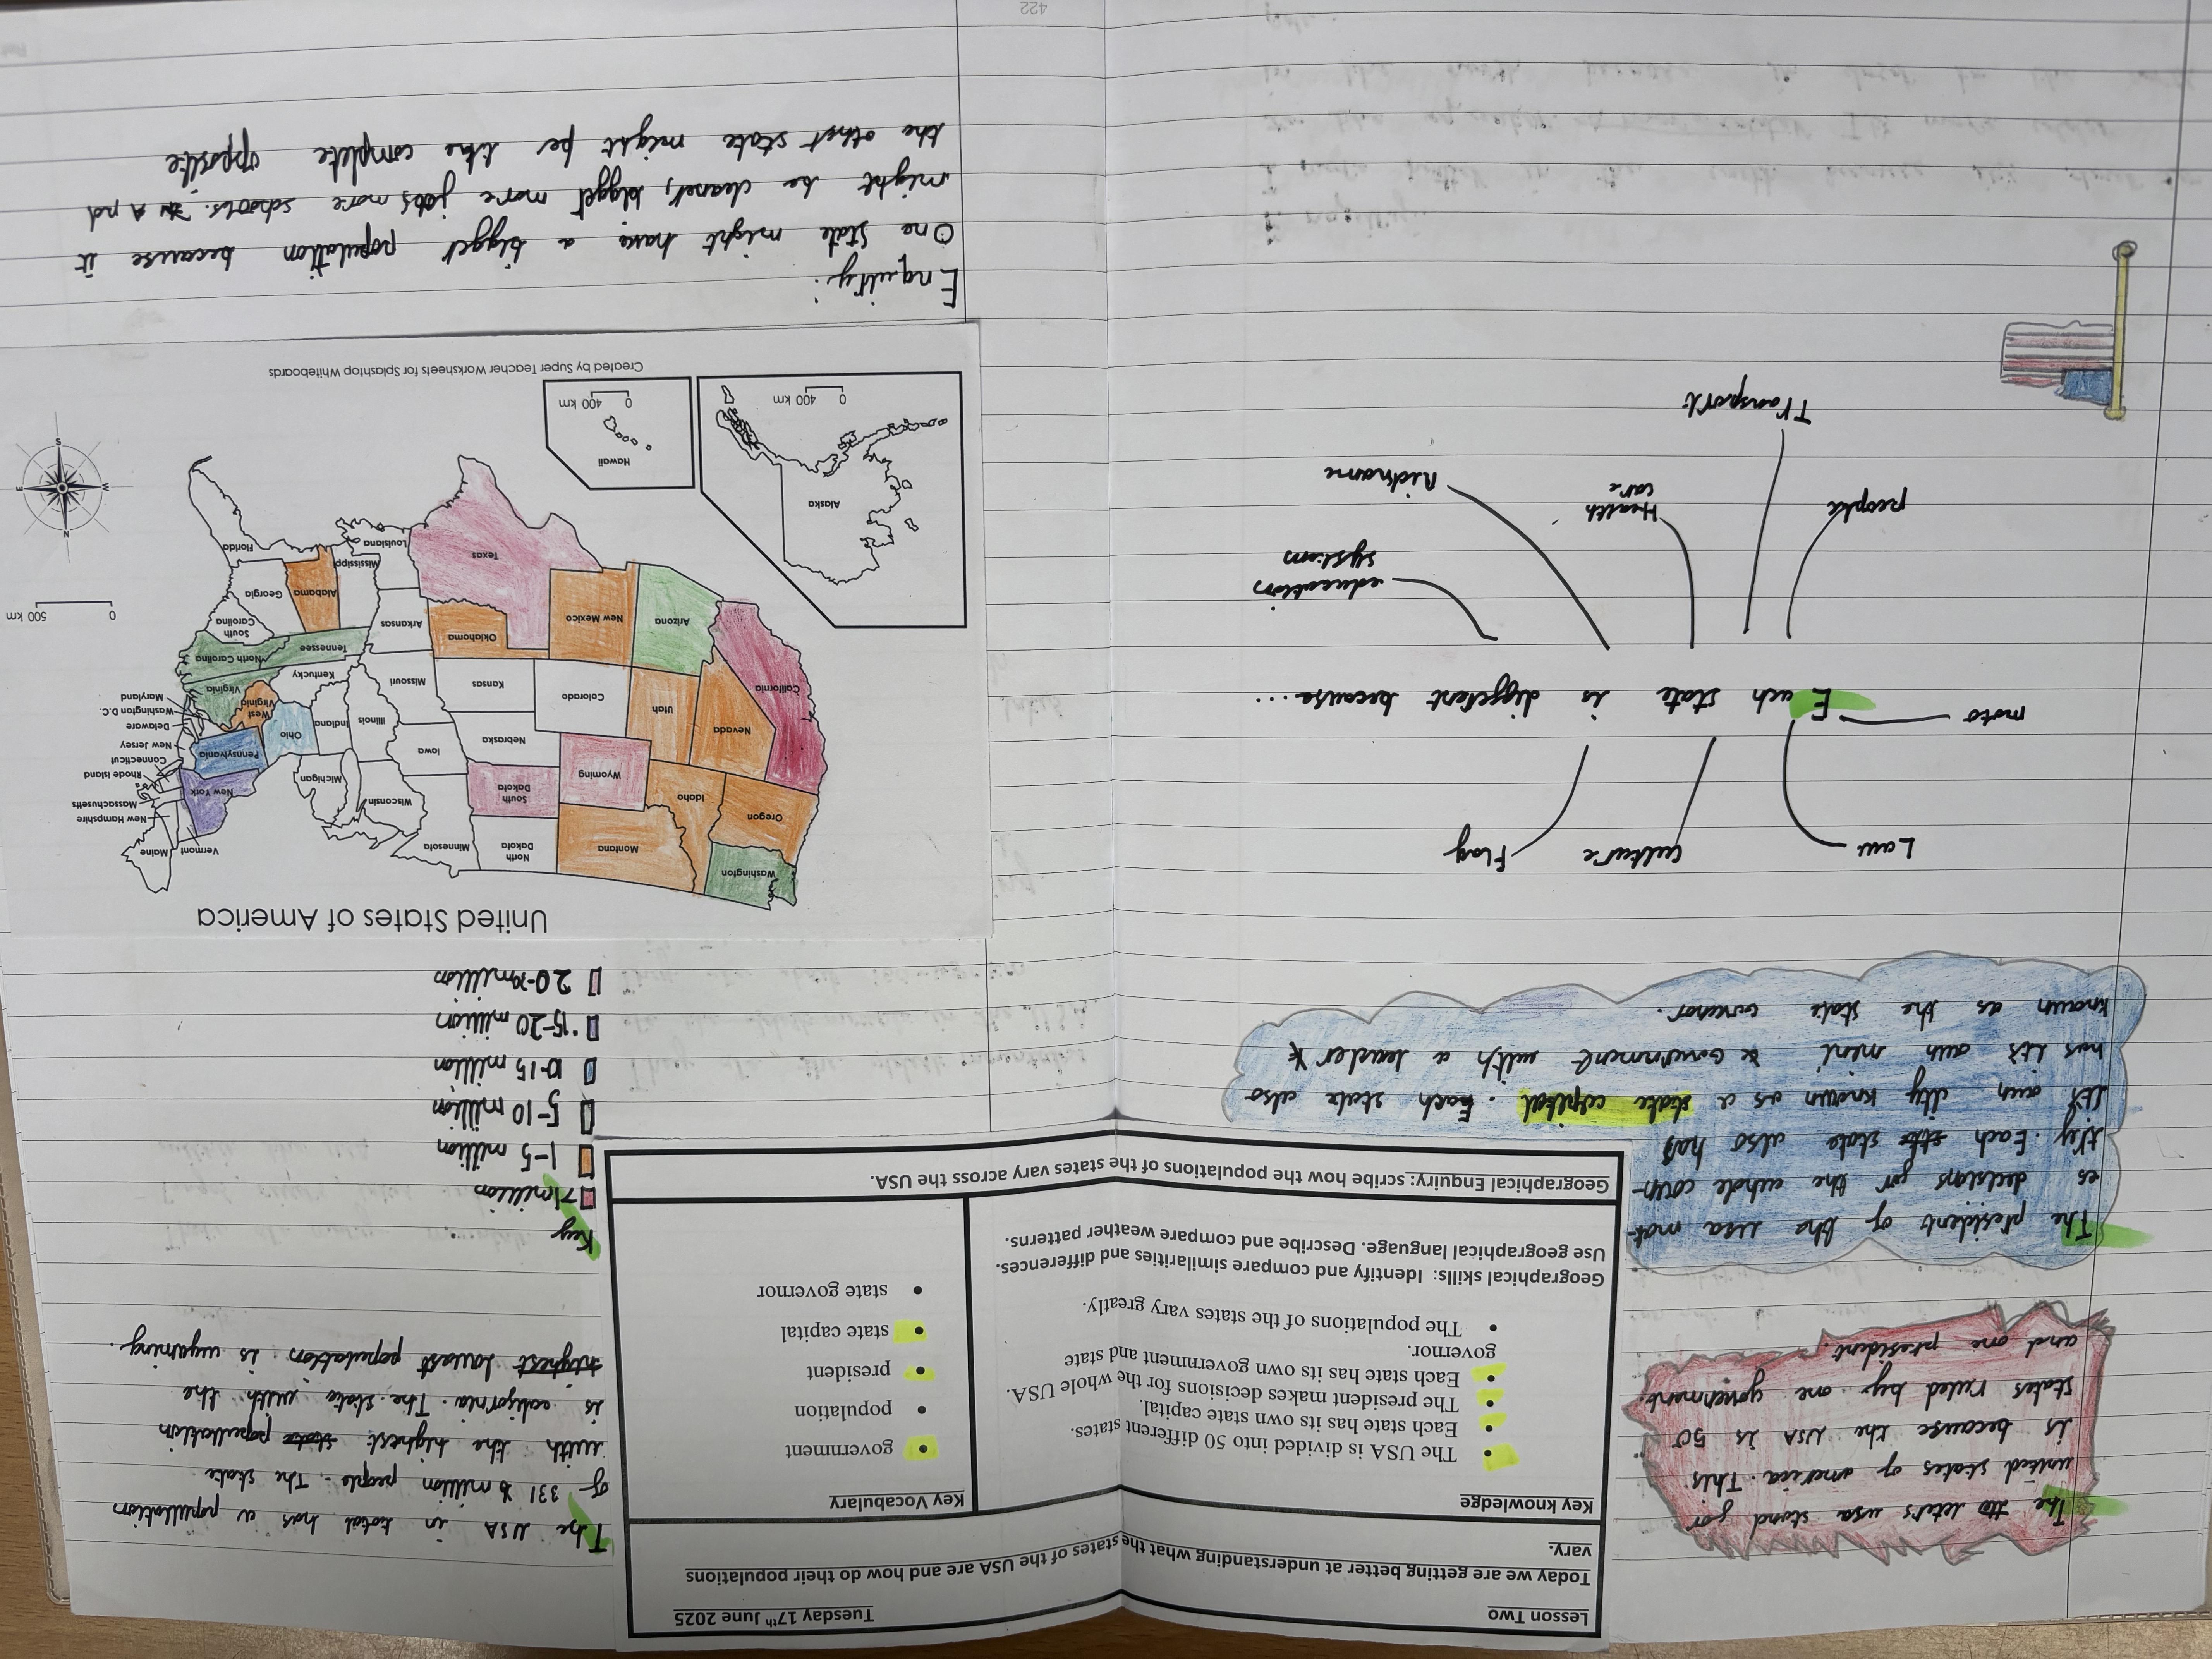 Lesson Two
Tuesday 17th June 2025
Today we are getting better at understanding what the states of the USA are and how do their populations
vary.
Key knowledge
The USA is divided into 50 different states.
Each state has its own state capital.
The president makes decisions for the whole USA.
Each state has its own government and state
governor.
The populations of the states vary greatly.
Geographical skills: Identify and compare similarities and differences.
Use geographical language. Describe and compare weather patterns.
Key Vocabulary
government
population
president
state capital
state governor
Geographical Enquiry: scribe how the populations of the states vary across the USA.
The leters usa stand for
united states of america. This
is because the USA is 50
states ruled by one government
and one president.
The president of the usa mak-
es decisions for the whole coun-
try. Each state also has
it's own city known as a state capital. Each state also
has it's own ment government with a leader
known as the state
Law
culture
Flag
moto
Each state is different because...
people
Transport
Health
care
Nickname
education
systiems
The USA in total has a popullation
of 331 million people. The state
with the highest state popullation
is california. The state with the
highest lowest population is wyoming.
Key
71million
1-5 million
5-10 million
10-15 million
15-20 million
20-39million
United States of America
Washington
Oregon
California
Nevada
Idaho
Montana
Wyoming
Utah
Arizona
Colorado
New Mexico
North
Dakota
South
Dakota
Nebraska
Kansas
Oklahoma
Texas
Minnesota
Iowa
Missouri
Arkansas
Louisiana
Wisconsin
Illinois
Michigan
Indiana
Ohio
Kentucky
Tennessee
Mississippi
Alabama
Georgia
Florida
South
Carolina
North Carolina
Virginia
West
Virginia
Pennsylvania
New York
Vermont
Maine
New Hampshire
Massachusetts
Rhode Island
Connecticut
New Jersey
Delaware
Washington D.C.
Maryland
N
W
E
S
0 500 km
Alaska
0 400 km
Hawaii
0 400 km
Created by Super Teacher Worksheets for Splashtop Whiteboards
Enquiry:
One state might have a bigger population because it
might be cleaner, bigger more jobs more schools. And
the other state might be the complete opposite
422